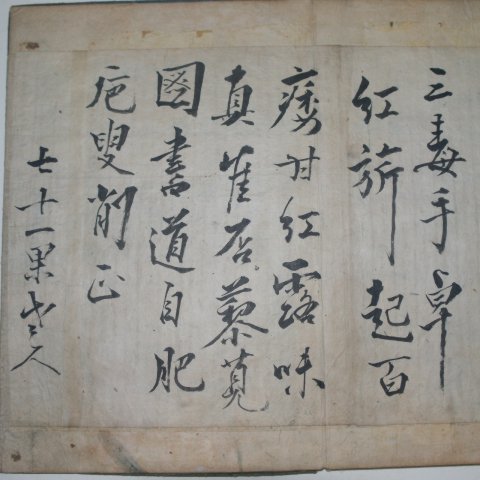 三毒手卓
紅旂起百
痿甘紅露味
真否藜莧
圖書道自肥
叟削正
七十一果老人